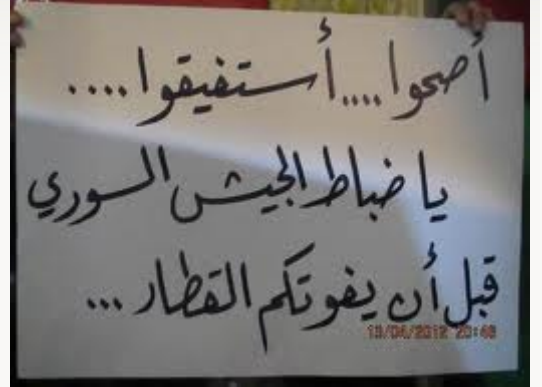 أصحوا....أستفيقوا....
يا ضباط الجيش السوري
قبل أن يفوتكم القطار...
13/04/2012 20:48